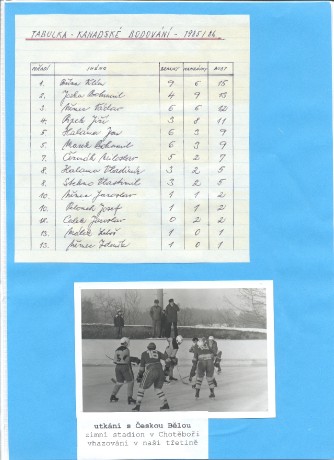 TABULKA - KANADSKÉ BODOVÁNÍ - 1985/86
POŘADÍ JMÉNO BRANKY NAHRÁVKY BODY
1. 9 6 15
2. Joska Bohumil 4 9 13
3. Němec Václav 6 6 12
4. Jiří 3 8 11
5. Haluna Jan 6 3 9
5. Marek Bohumil 6 3 9
7. Černík Miloslav 5 2 7
8. Haluna Vladimír 3 2 5
8. Vlastimil 3 2 5
10. Jaroslav 1 1 2
10. Josef 1 1 2
10. Jaroslav 0 2 2
13. 1 0 1
13. Němec Zdeněk 1 0 1
utkání s Českou Bělou
zimní stadion v Chotěboři
vhazování v naší třetině